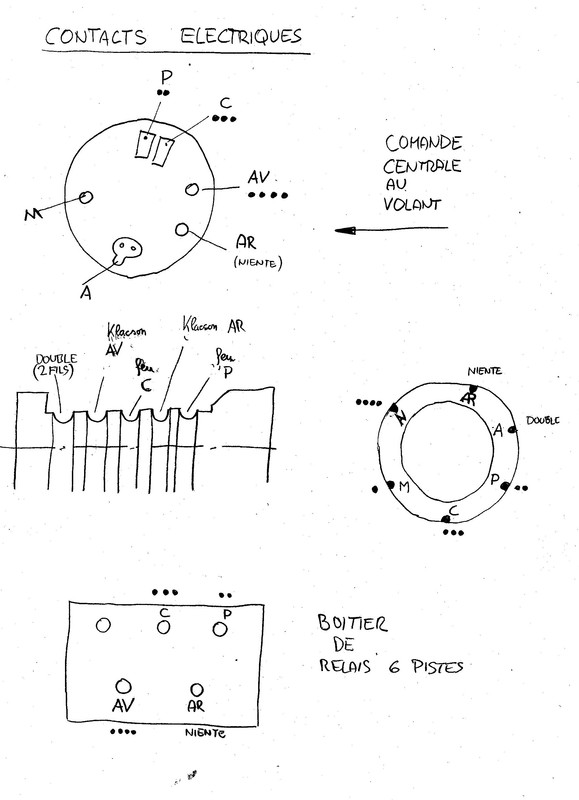 CONTACTS ELECTRIQUES
P
C
AV
M
AR
(NIENTE)
A
COMANDE
CENTRALE
AU
VOLANT
DOUBLE
(2 FILS)
Klacson
AV
feu
C
Klacson AR
feu
P
NIENTE
AR
A
DOUBLE
P
C
M
C
P
AV
AR
NIENTE
BOITIER
DE
RELAIS 6 PISTES